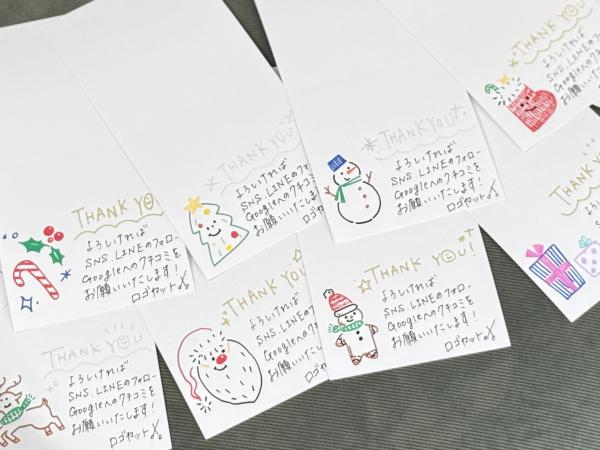 THANK YOU
よろしければ
SNS、LINEのフォロー
Googleへのクチコミを
お願いいたします!
ロゴセット
THANK YOU
よろしければ
SNS、LINEのフォロ
Googleへのクチコミ
お願いいたします
ロゴセ
THANK YOU
よろしければ
SNS、LINEのフォロー
Googleへのクチコミを
お願いいたします!
ロゴセット
THANK YOU
よろしければ
SNS、LINEのフォ
Googleへのクチコ
お願いいたしま
THANK YOU
よろしければ
SNS、LINEのフォロー
Googleへのクチコミを
お願いいたします!
ロゴセット
THANK YOU
よろしければ
SNS、LINEの
Googleへのク
お願いいたし
ロゴ
THANK YOU!
よろしければ
SNS、LINEのフォロー
Googleへのクチコミを
お願いいたします!
ロゴセット
THANK
よろしければ
SNS、LINE
Googleへの
お願いいた